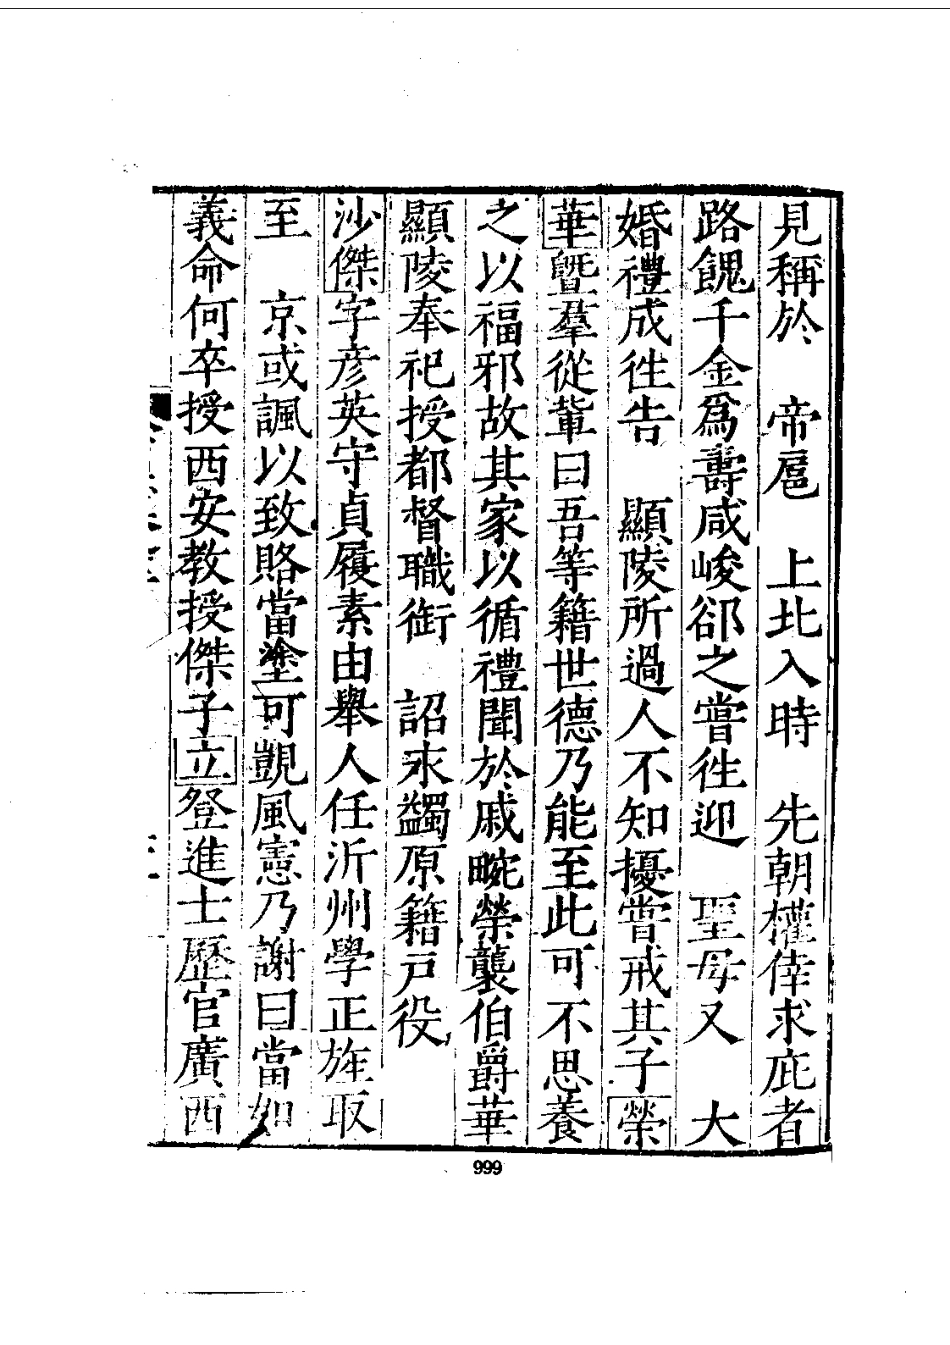 見稱於　帝扈　上北入時　先朝權倖求庇者
路餽千金爲壽咸峻郤之嘗徃迎　聖母又　大
婚禮成徃告　顯陵所過人不知擾嘗戒其子榮
華曁羣從輩曰吾等籍世德乃能至此可不思養
之以福邪故其家以循禮聞於戚畹榮襲伯爵華
顯陵奉祀授都督職銜　詔永蠲原籍戸役
沙傑字彦英守貞履素由舉人任沂州學正旌取
至　京或諷以致賂當塗可覬風憲乃謝曰當如
義命何卒授西安教授傑子立登進士歷官廣西
999